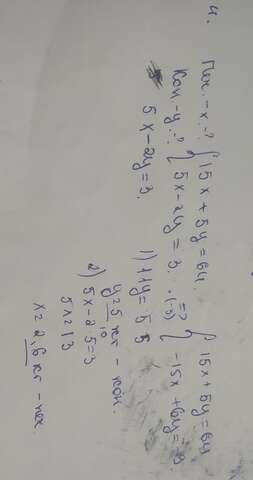 4.
Печ. - x -? { 15x + 5y = 64.
Кон. - y -? { 5x - 2y = 3. · (-3)
=> { 15x + 5y = 64
{ -15x + 6y = 9.
5x - 2y = 3.
1) 11y = 55
y = 5 кг - кон.
2) 5x - 2·5 = 3
5x = 13
x = 2,6 кг - печ.